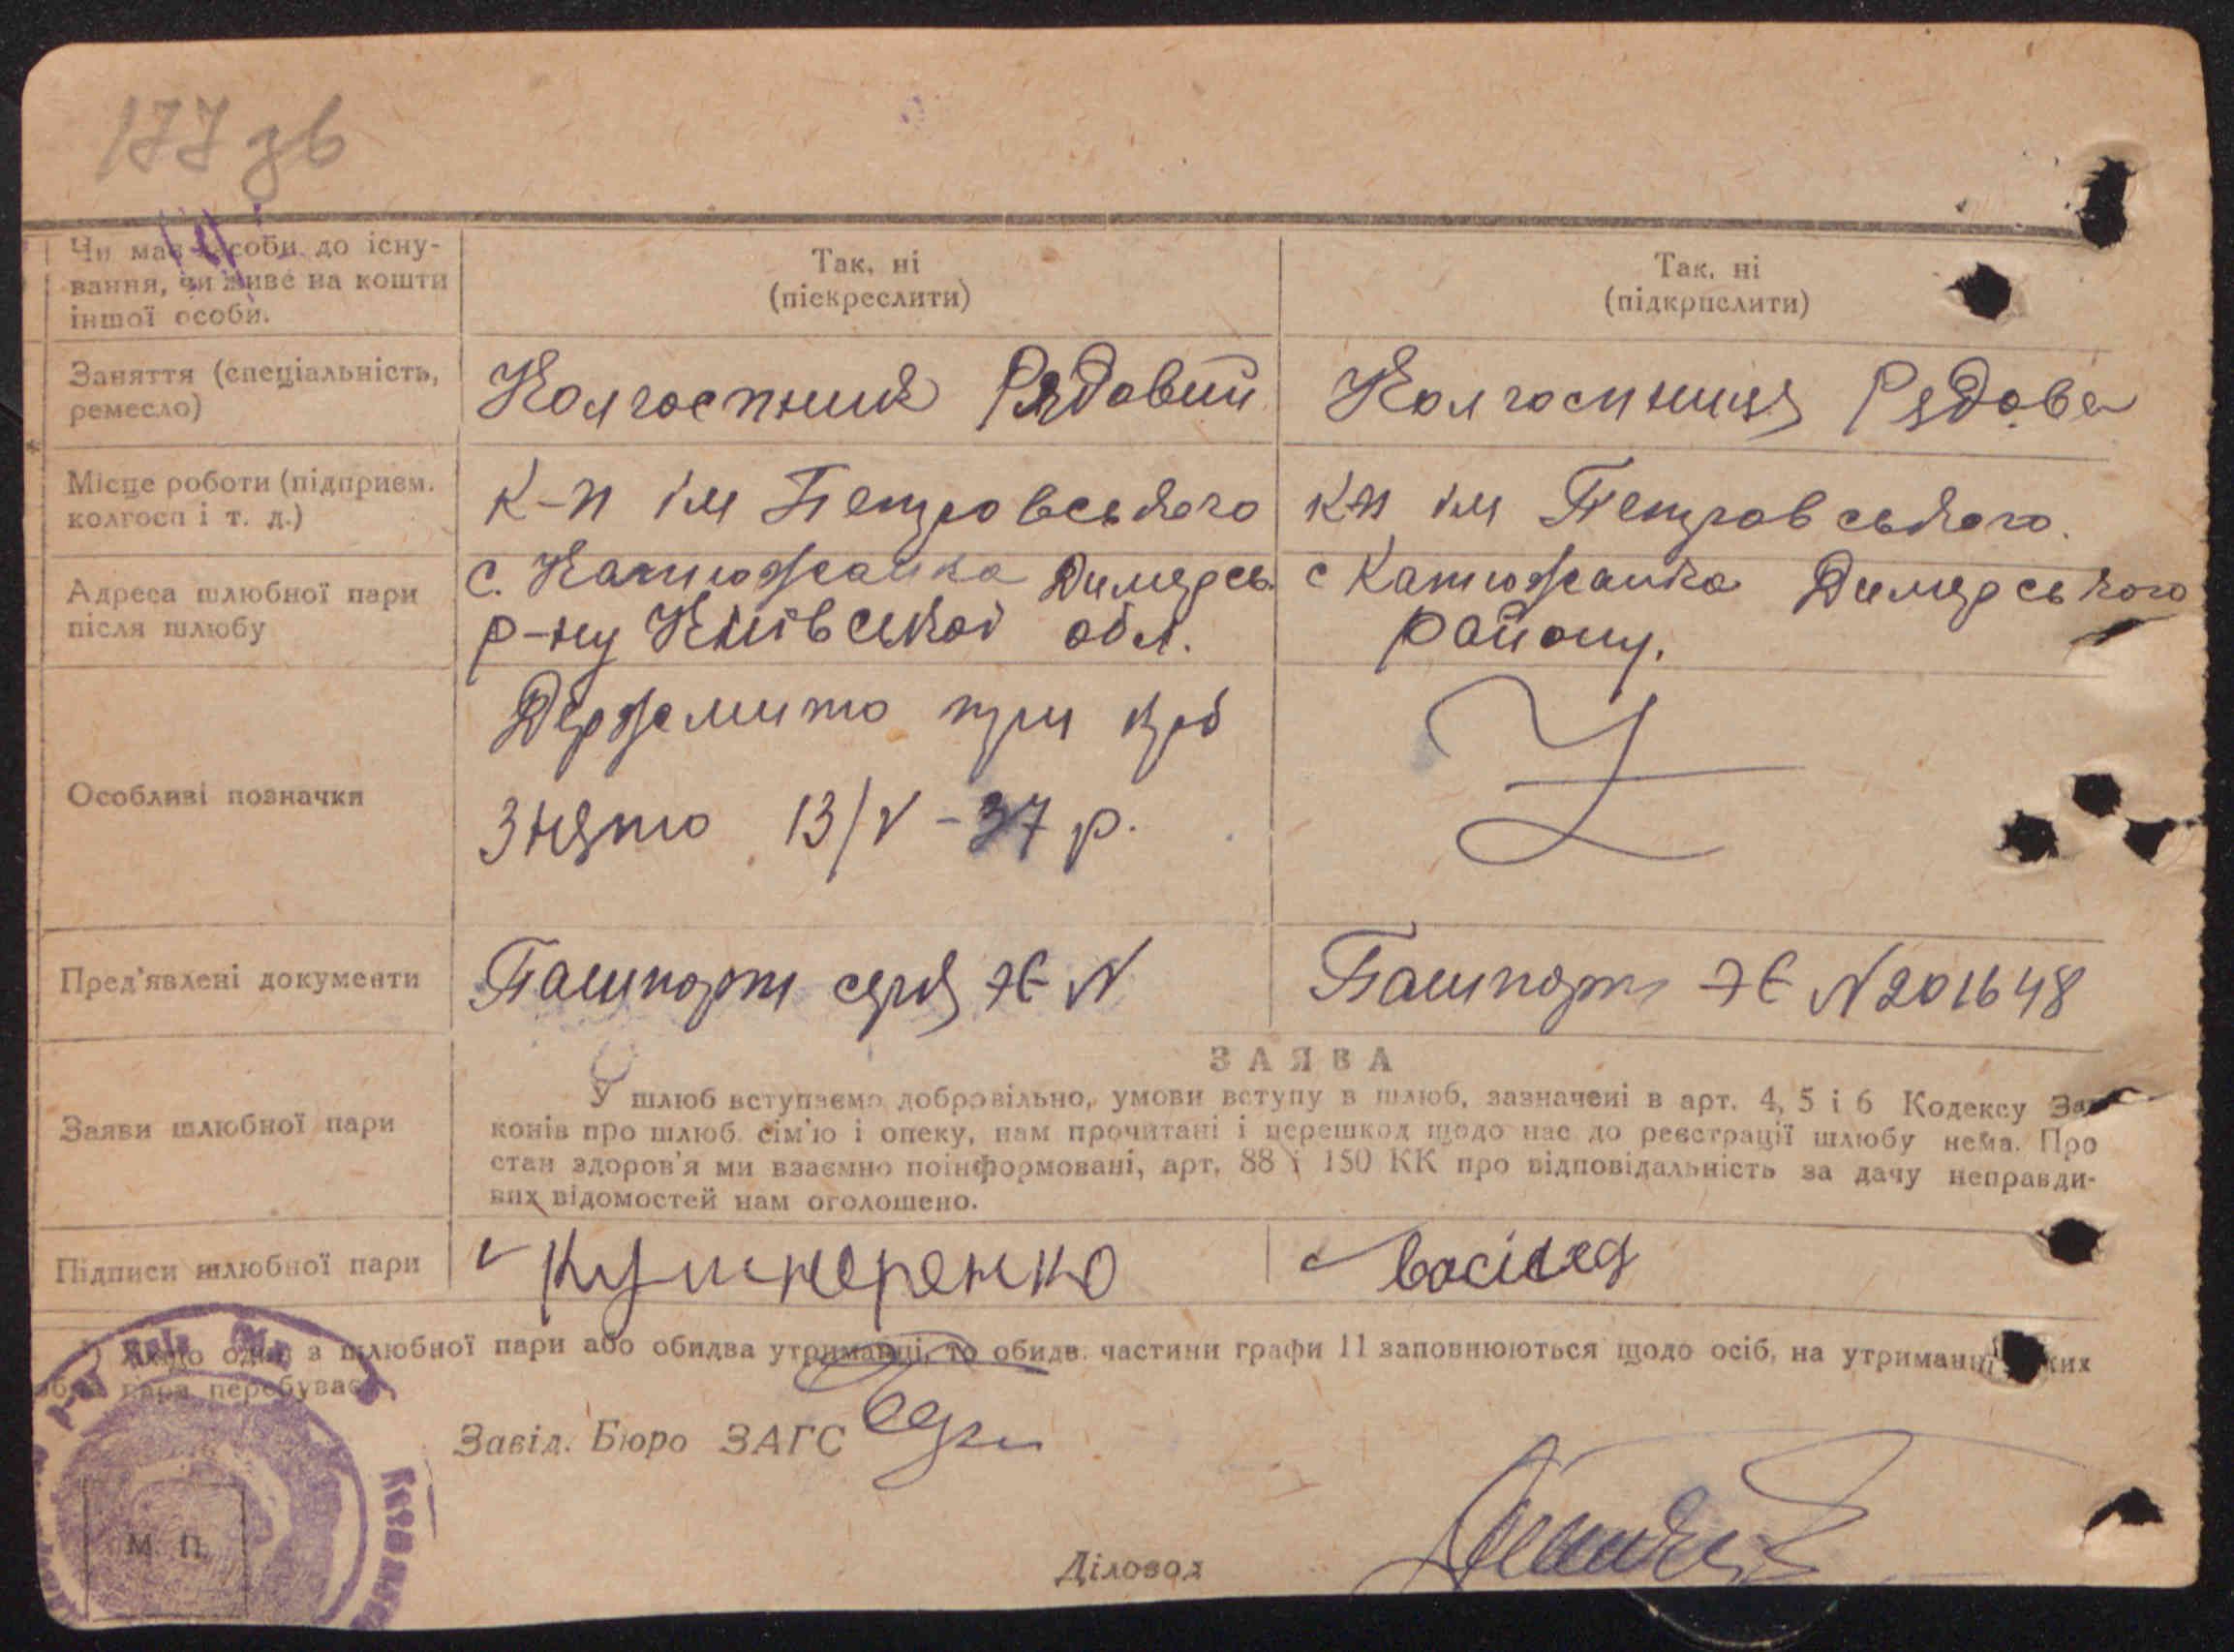 177 зв
Чи має засоби до існу-
вання, чи живе на кошти
іншої особи.
Так, ні
(піскреслити)
Так, ні
(підкрислити)
Заняття (спеціальність,
ремесло)
Колгоспник Рядовий
Колгоспниця Рядова
Місце роботи (підприєм.
колгосп і т. д.)
К-п ім Петровського
К-п ім Петровського.
Адреса шлюбної пари
після шлюбу
с. Катюжанка Димерсь.
р-ну Київської обл.
с Катюжанка Димерського
району.
Особливі позначки
Держмито три крб
Знято 13/V-37 р.
Z
Пред'явлені документи
Пашпорт серія ЭЄ N
Пашпорт ЭЄ N 201648
Заяви шлюбної пари
ЗАЯВА
У шлюб вступаємо добровільно, умови вступу в шлюб, зазначені в арт. 4, 5 і 6 Кодексу За-
конів про шлюб сім'ю і опеку, нам прочитані і перешкод щодо нас до реєстрації шлюбу нема. Про
стан здоров'я ми взаємно поінформовані, арт. 88 і 150 КК про відповідальність за дачу неправди-
вих відомостей нам оголошено.
Підписи шлюбної пари
Кушнеренко
Якщо один з шлюбної пари або обидва утриманці, то обидв. частини графи 11 заповнюються щодо осіб, на утриманні яких
пара перебуває
Завід. Бюро ЗАГС
М. П.
Діловод